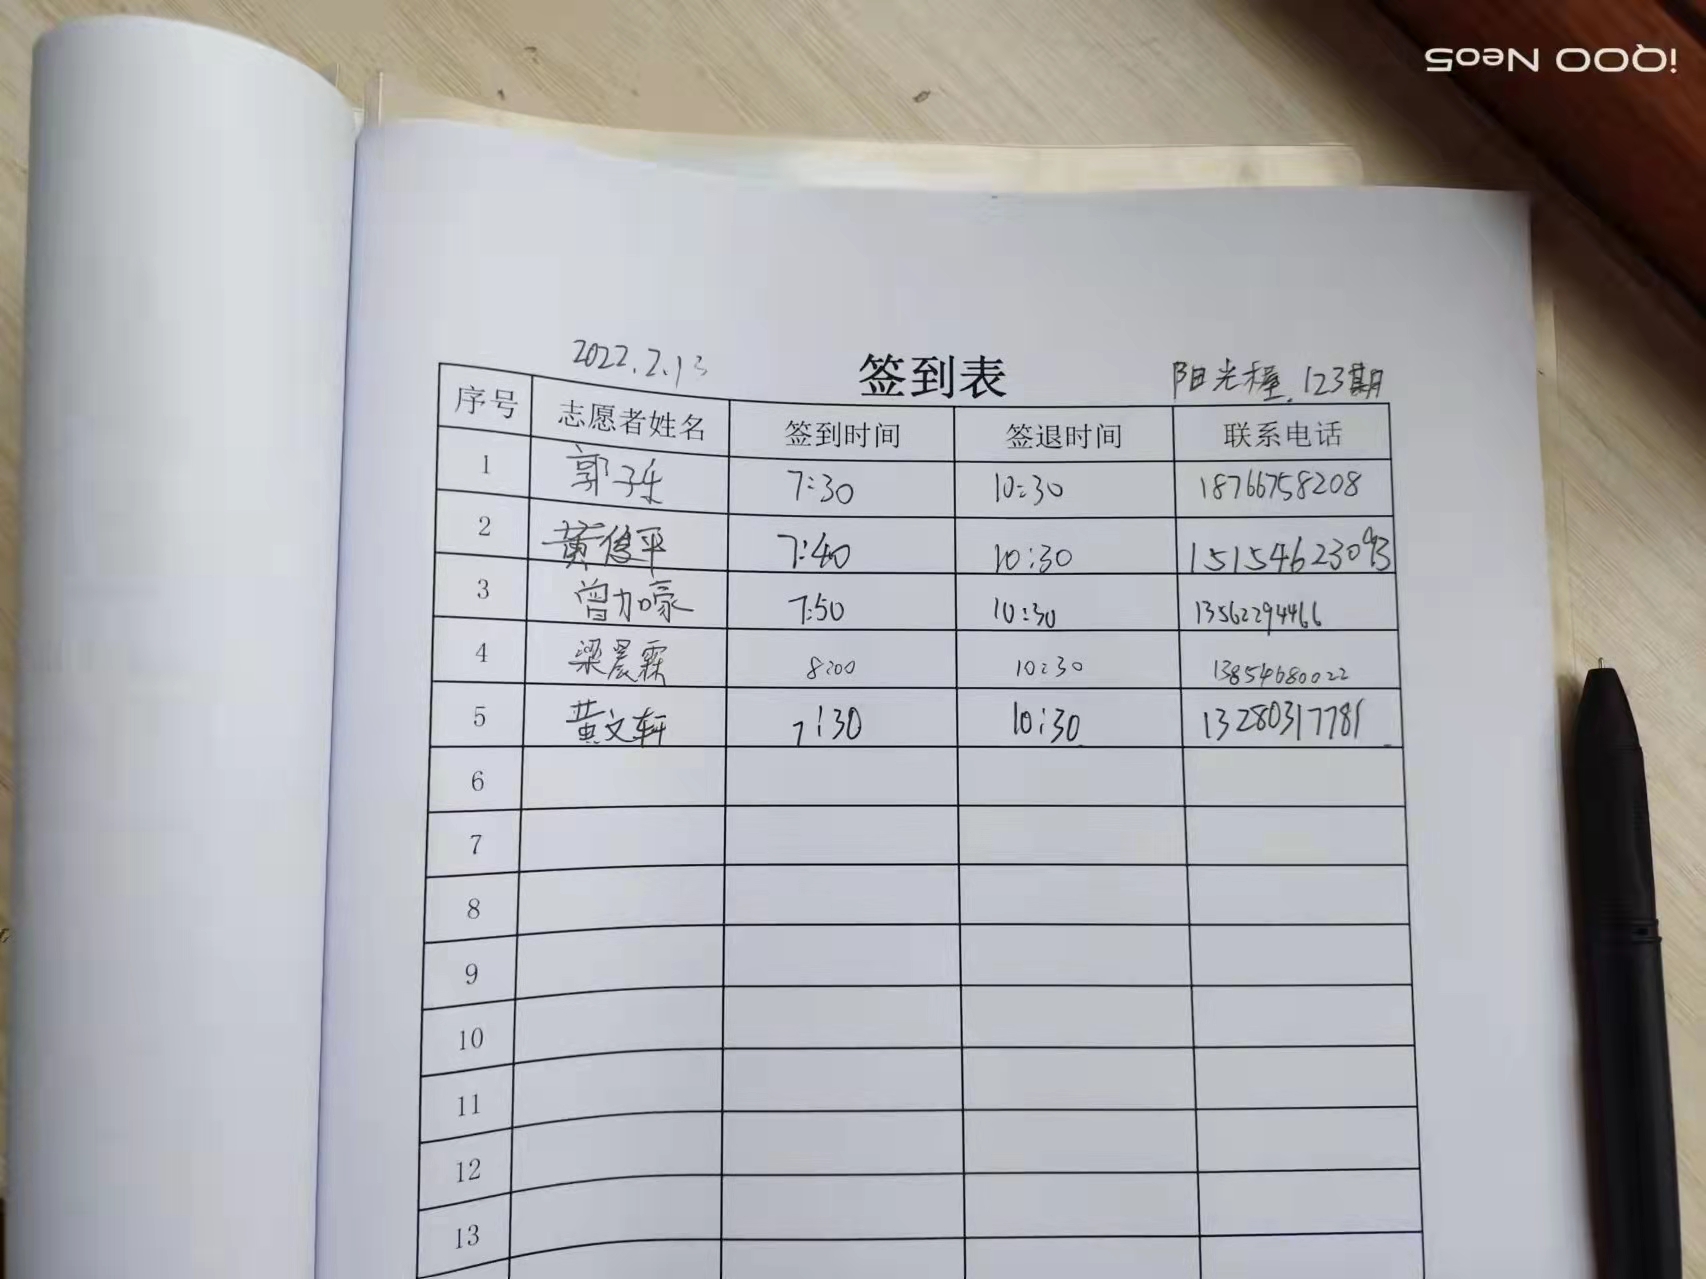 iQOO Neo5
2022.2.13 签到表 阳光橦.123期
序号 志愿者姓名 签到时间 签退时间 联系电话
1 郭子乐 7:30 10:30 18766758208
2 黄俊平 7:40 10:30 15154623093
3 曾加豪 7:50 10:30 13562294466
4 梁晨霖 8:00 10:30 13854680022
5 黄文轩 7:30 10:30 13280317781
6
7
8
9
10
11
12
13